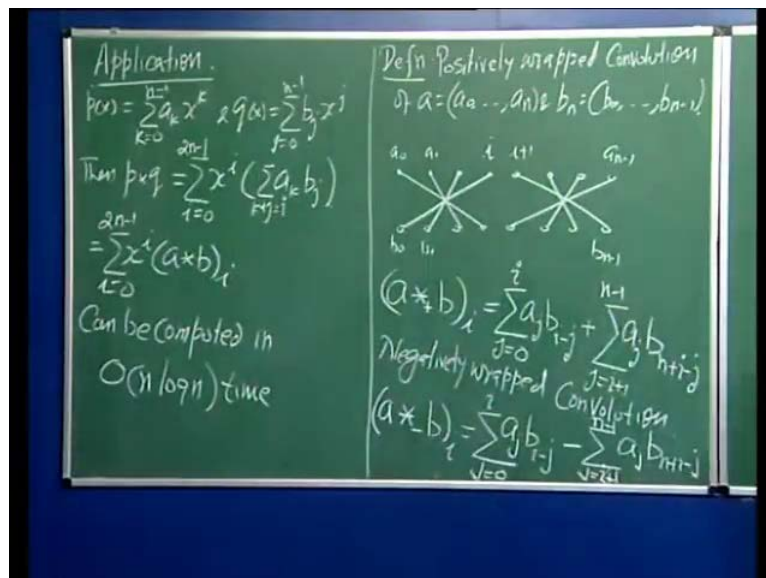 Application.
p(x) = \sum_{k=0}^{n-1} a_k x^k & q(x) = \sum_{j=0}^{n-1} b_j x^j
Then p×q = \sum_{i=0}^{2n-1} x^i (\sum_{k+j=i} a_k b_j)
= \sum_{i=0}^{2n-1} x^i (a*b)_i
Can be computed in
O(n log n) time
Defn Positively wrapped Convolution
of a = (a_0 ..., a_n) & b_n = (b_0, ..., b_{n-1})
a_0 a_1 i i+1 a_{n-1}
b_0 b_1 b_{n-1}
(a *_+ b)_i = \sum_{j=0}^{i} a_j b_{i-j} + \sum_{j=i+1}^{n-1} a_j b_{n+i-j}
Negatively wrapped Convolution
(a *_- b)_i = \sum_{j=0}^{i} a_j b_{i-j} - \sum_{j=i+1}^{n-1} a_j b_{n+i-j}